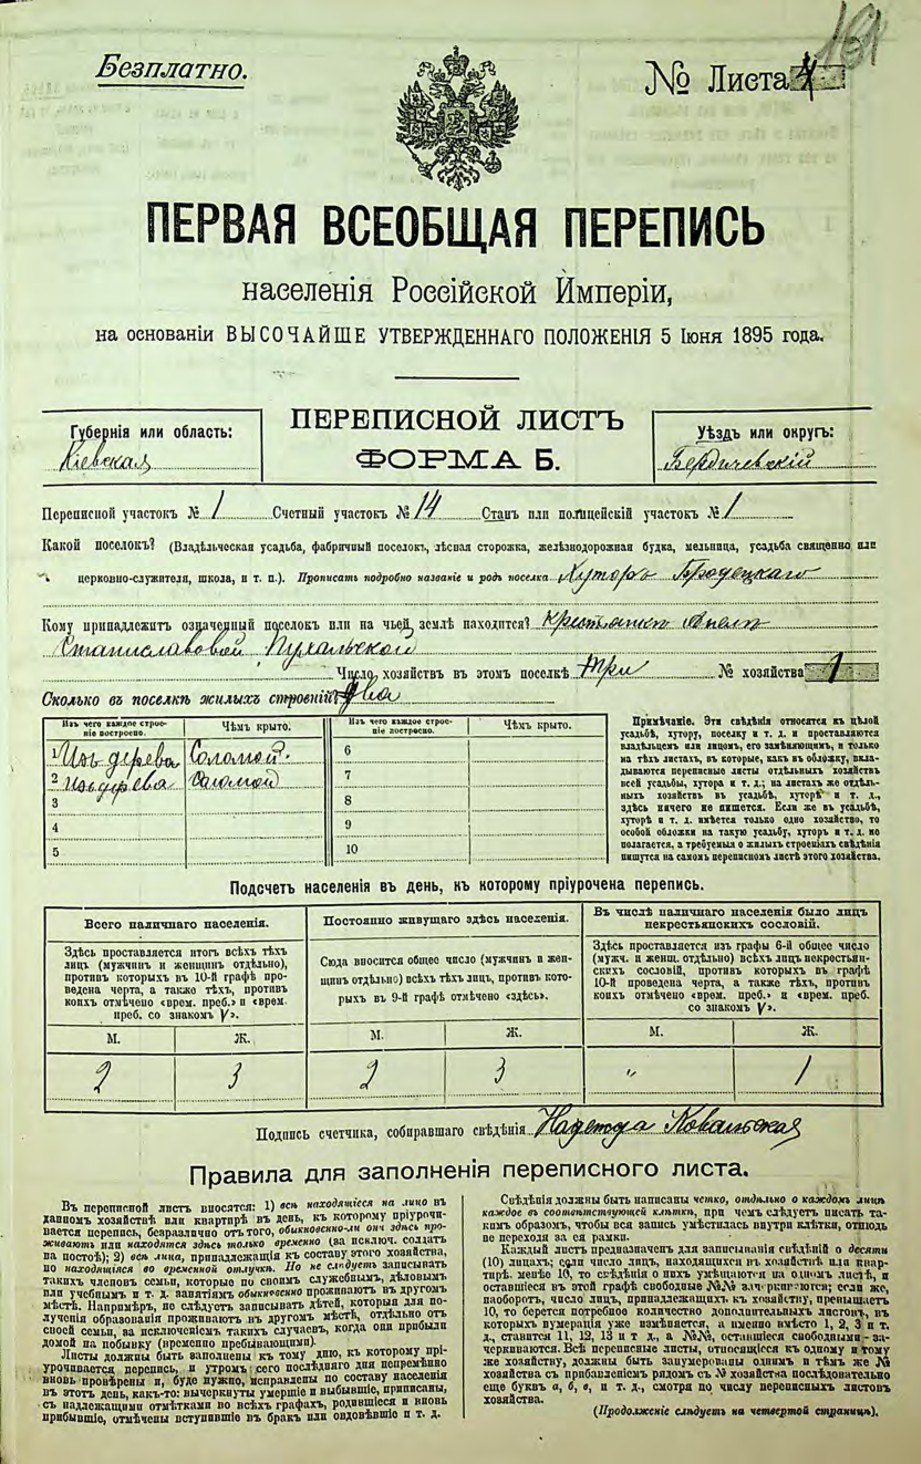 Безплатно.
№ Листа 4
161
ПЕРВАЯ ВСЕОБЩАЯ ПЕРЕПИСЬ
населенія Россійской Имперіи,
на основаніи ВЫСОЧАЙШЕ УТВЕРЖДЕННАГО ПОЛОЖЕНІЯ 5 Іюня 1895 года.
Губернія или область:
Кіевская
ПЕРЕПИСНОЙ ЛИСТЪ
ФОРМА Б.
Уѣздъ или округъ:
Бердичевскій
Переписной участокъ № 1 Счетный участокъ № 14 Станъ или полицейскій участокъ № 1
Какой поселокъ? (Владѣльческая усадьба, фабричный поселокъ, лѣсная сторожка, желѣзнодорожная будка, мельница, усадьба священно или
церковно-служителя, школа, и т. п.). Прописать подробно названіе и родъ поселка Хуторъ Бродецкаго
Кому принадлежитъ означенный поселокъ или на чьей землѣ находится? Крестьянки
Станиславовой Пухальской
Число хозяйствъ въ этомъ поселкѣ Три № хозяйства 1
Сколько въ поселкѣ жилыхъ строеній? Два
Изъ чего каждое строе-
ніе построено.
Чѣмъ крыто.
Изъ чего каждое строе-
ніе построено.
Чѣмъ крыто.
1 Изъ дерева Соломой.
2 Изъ дерева Соломой
3
4
5
6
7
8
9
10
Примѣчаніе. Эти свѣдѣнія относятся къ цѣлой
усадьбѣ, хутору, поселку и т. д. и проставляются
владѣльцемъ или лицомъ, его замѣняющимъ, и только
на тѣхъ листахъ, въ которые, какъ въ обложку, вкла-
дываются переписные листы отдѣльныхъ хозяйствъ
всей усадьбы, хутора и т. д.; на листахъ же отдѣль-
ныхъ хозяйствъ въ усадьбѣ, хуторѣ и т. д.,
здѣсь ничего не пишется. Если же въ усадьбѣ,
хуторѣ и т. д. имѣется только одно хозяйство, то
особой обложки на такую усадьбу, хуторъ и т. д. не
полагается, а требуемыя о жилыхъ строеніяхъ свѣдѣнія
пишутся на самомъ переписномъ листѣ этого хозяйства.
Подсчетъ населенія въ день, къ которому пріурочена перепись.
Всего наличнаго населенія.
Здѣсь проставляется итогъ всѣхъ тѣхъ
лицъ (мужчинъ и женщинъ отдѣльно),
противъ которыхъ въ 10-й графѣ про-
ведена черта, а также тѣхъ, противъ
коихъ отмѣчено «врем. преб.» и «врем.
преб. со знакомъ V».
М. Ж.
2 3
Постоянно живущаго здѣсь населенія.
Сюда вносится общее число (мужчинъ и жен-
щинъ отдѣльно) всѣхъ тѣхъ лицъ, противъ кото-
рыхъ въ 9-й графѣ отмѣчено «здѣсь».
М. Ж.
2 3
Въ числѣ наличнаго населенія было лицъ
некрестьянскихъ сословій.
Здѣсь проставляется изъ графы 6-й общее число
(мужч. и женщ. отдѣльно) всѣхъ лицъ некрестьян-
скихъ сословій, противъ которыхъ въ графѣ
10-й проведена черта, а также тѣхъ, противъ
коихъ отмѣчено «врем. преб.» и «врем. преб.
со знакомъ V».
М. Ж.
" 1
Подпись счетчика, собиравшаго свѣдѣнія Надежда Ковальская
Правила для заполненія переписного листа.
Въ переписной листъ вносятся: 1) всѣ находящіеся на лицо въ
данномъ хозяйствѣ или квартирѣ въ день, къ которому пріурочи-
вается перепись, безразлично отъ того, обыкновенно-ли они здѣсь про-
живаютъ или находятся здѣсь только временно (за исключ. солдатъ
на постоѣ); 2) всѣ лица, принадлежащія къ составу этого хозяйства,
но находящіяся во временной отлучкѣ. Но не слѣдуетъ записывать
такихъ членовъ семьи, которые по своимъ служебнымъ, дѣловымъ
или учебнымъ и т. д. занятіямъ обыкновенно проживаютъ въ другомъ
мѣстѣ. Напримѣръ, не слѣдуетъ записывать дѣтей, которыя для по-
лученія образованія проживаютъ въ другомъ мѣстѣ, отдѣльно отъ
своей семьи, за исключеніемъ такихъ случаевъ, когда они прибыли
домой на побывку (временно пребывающими).
Листы должны быть заполнены къ тому дню, къ которому прі-
урочивается перепись, и утромъ сего послѣдняго дня непремѣнно
вновь провѣрены и, буде нужно, исправлены по составу населенія
въ этотъ день, какъ-то: вычеркнуты умершіе и выбывшіе, приписаны,
съ надлежащими отмѣтками во всѣхъ графахъ, родившіеся и вновь
прибывшіе, отмѣчены вступившіе въ бракъ или овдовѣвшіе и т. д.
Свѣдѣнія должны быть написаны четко, отдѣльно о каждомъ лицѣ
каждое въ соотвѣтствующей клѣткѣ, при чемъ слѣдуетъ писать та-
кимъ образомъ, чтобы вся запись умѣстилась внутри клѣтки, отнюдь
не переходя за ея рамки.
Каждый листъ предназначенъ для записыванія свѣдѣній о десяти
(10) лицахъ; если число лицъ, находящихся въ хозяйствѣ или квар-
тирѣ, менѣе 10, то свѣдѣнія о нихъ умѣщаются на одномъ листѣ, и
оставшіеся въ этой графѣ свободные №№ зачеркиваются; если же,
наоборотъ, число лицъ, принадлежащихъ къ хозяйству, превышаетъ
10, то берется потребное количество дополнительныхъ листовъ, въ
которыхъ нумерація уже измѣняется, а именно вмѣсто 1, 2, 3 и т.
д., ставится 11, 12, 13 и т. д., а №№, оставшіеся свободными-за-
черкиваются. Всѣ переписные листы, относящіеся къ одному и тому
же хозяйству, должны быть занумерованы однимъ и тѣмъ же №
хозяйства съ прибавленіемъ рядомъ съ № хозяйства послѣдовательно
еще буквъ а, б, в, и т. д., смотря по числу переписныхъ листовъ
хозяйства.
(Продолженіе слѣдуетъ на четвертой страницѣ).